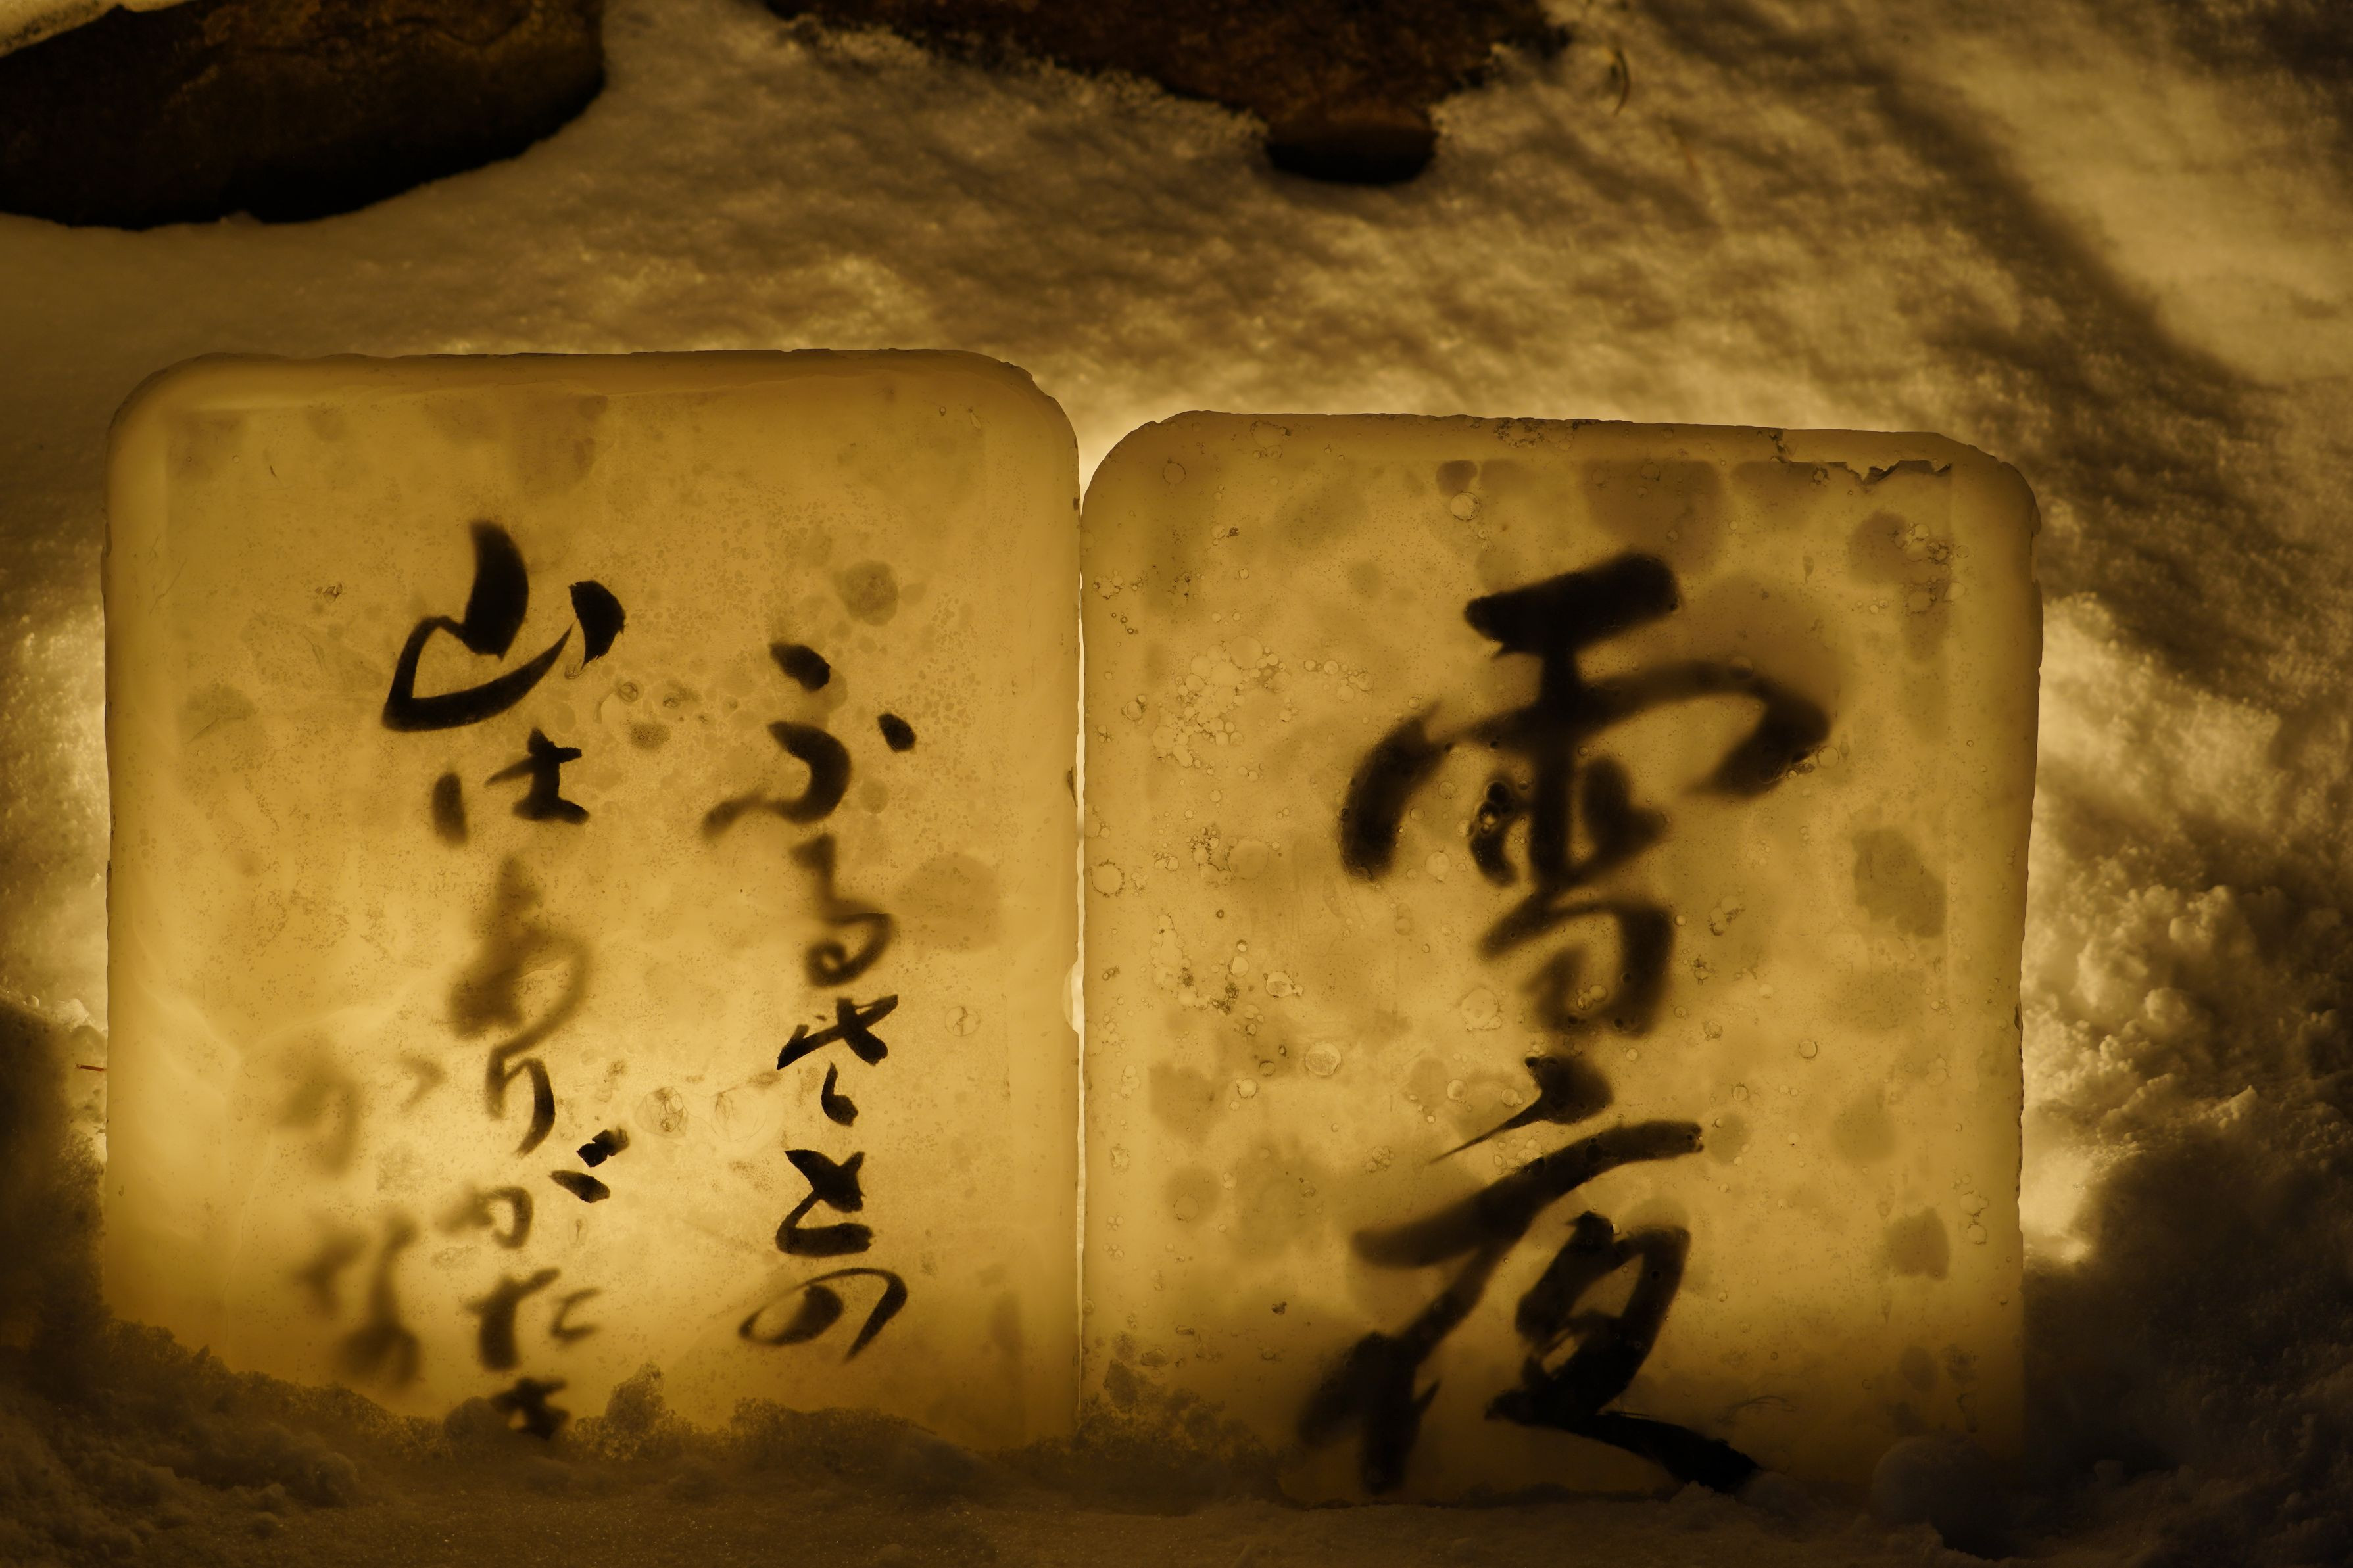 雪夜
ふるさとの
山はありがたき